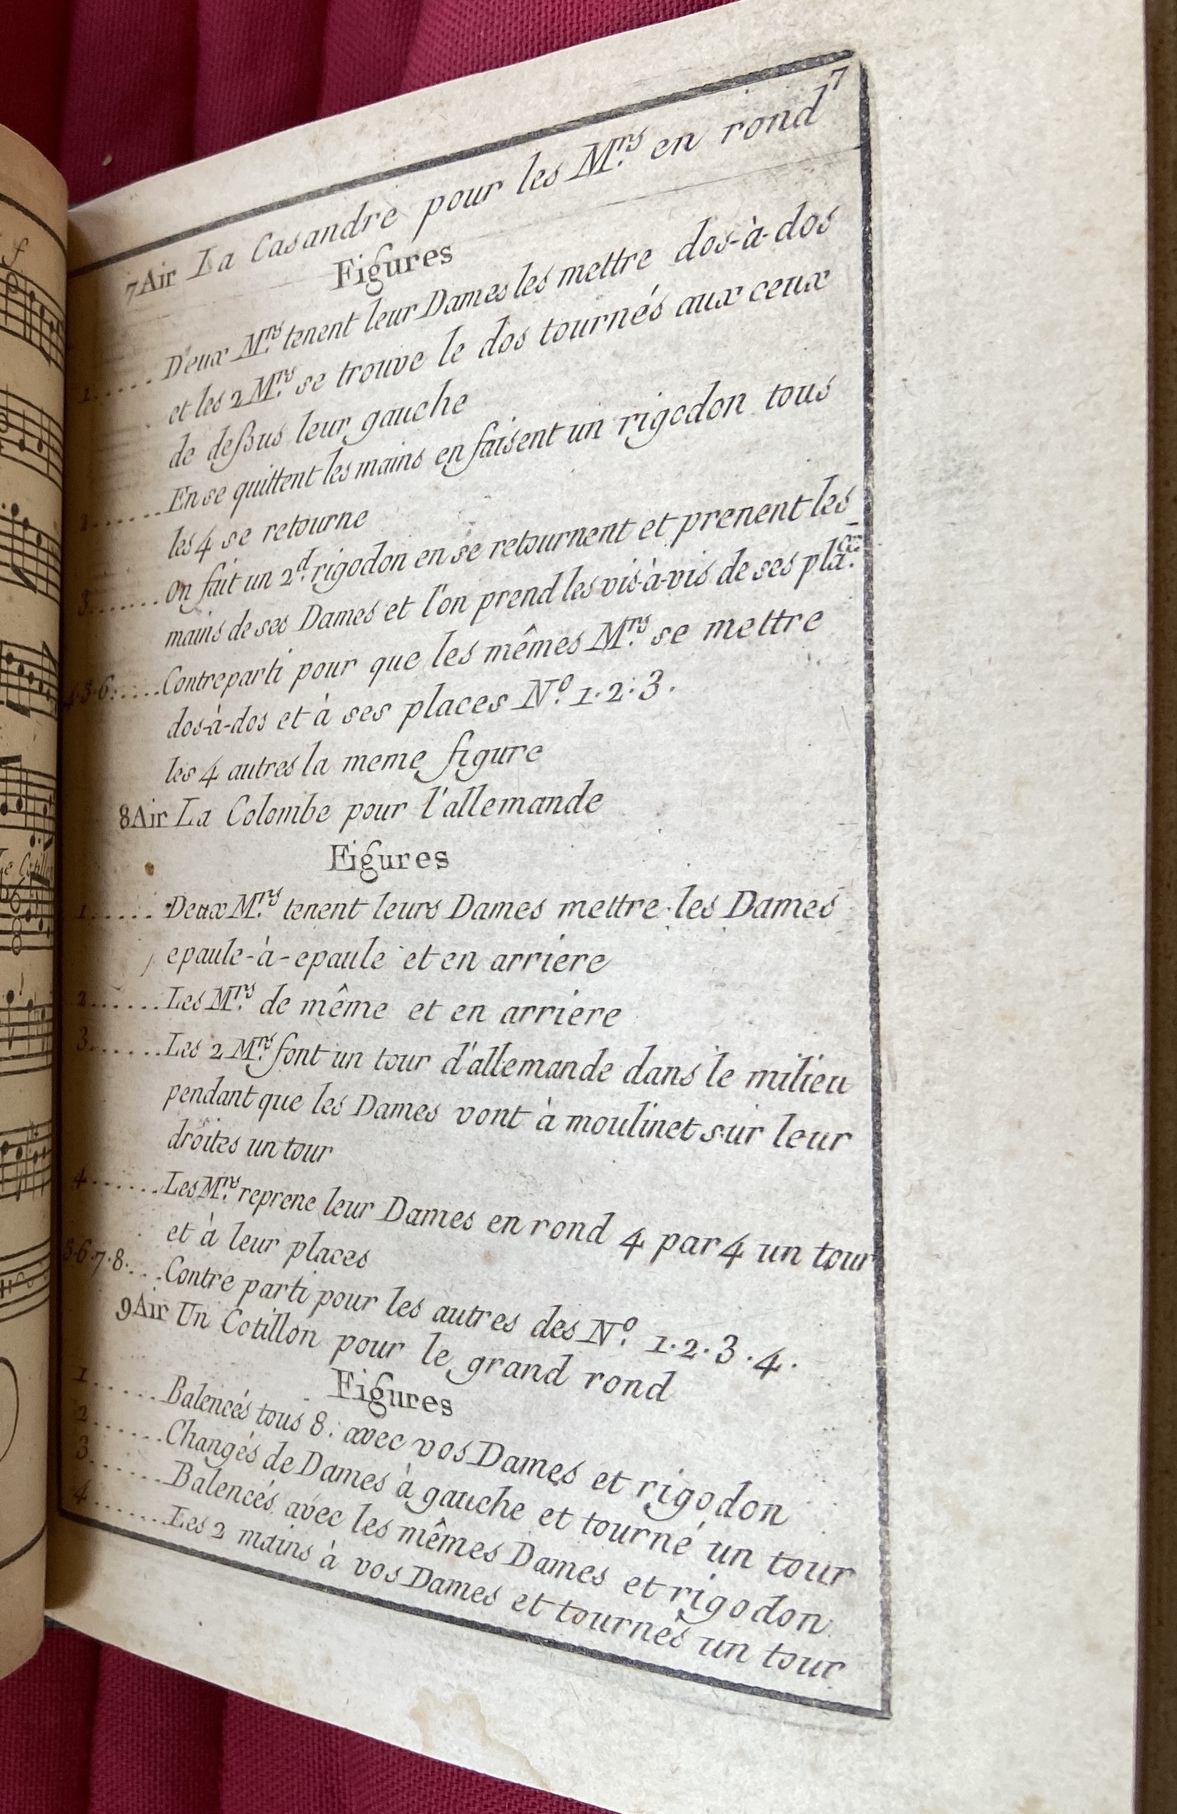 7
7 Air La Casandre pour les Mrs. en rond
Figures
1..... Deux Mrs. tenent leur Dames les mettre dos-à-dos
et les 2 Mrs. se trouve le dos tournés aux ceux
de deſsus leur gauche
2...... En se quittent les mains en faisent un rigodon tous
les 4 se retourne
3....... On fait un 2d. rigodon en se retournent et prenent les
mains de ses Dames et l'on prend les vis-à-vis de ses places.
4.5.6..... Contreparti pour que les mêmes Mrs. se mettre
dos-à-dos et à ses places No. 1.2.3.
les 4 autres la meme figure
8 Air La Colombe pour l'allemande
Figures
1..... Deux Mrs. tenent leurs Dames mettre les Dames
epaule-à-epaule et en arriere
2...... Les Mrs. de même et en arriere
3...... Les 2 Mrs. font un tour d'allemande dans le milieu
pendant que les Dames vont à moulinet sur leur
droites un tour
4...... Les Mrs. reprene leur Dames en rond 4 par 4 un tour
et à leur places
5.6.7.8.... Contre parti pour les autres des No. 1.2.3.4.
9 Air Un Cotillon pour le grand rond
Figures
1...... Balencés tous 8. avec vos Dames et rigodon
2...... Changés de Dames à gauche et tourné un tour
3...... Balencés avec les mêmes Dames et rigodon
4...... Les 2 mains à vos Dames et tournés un tour